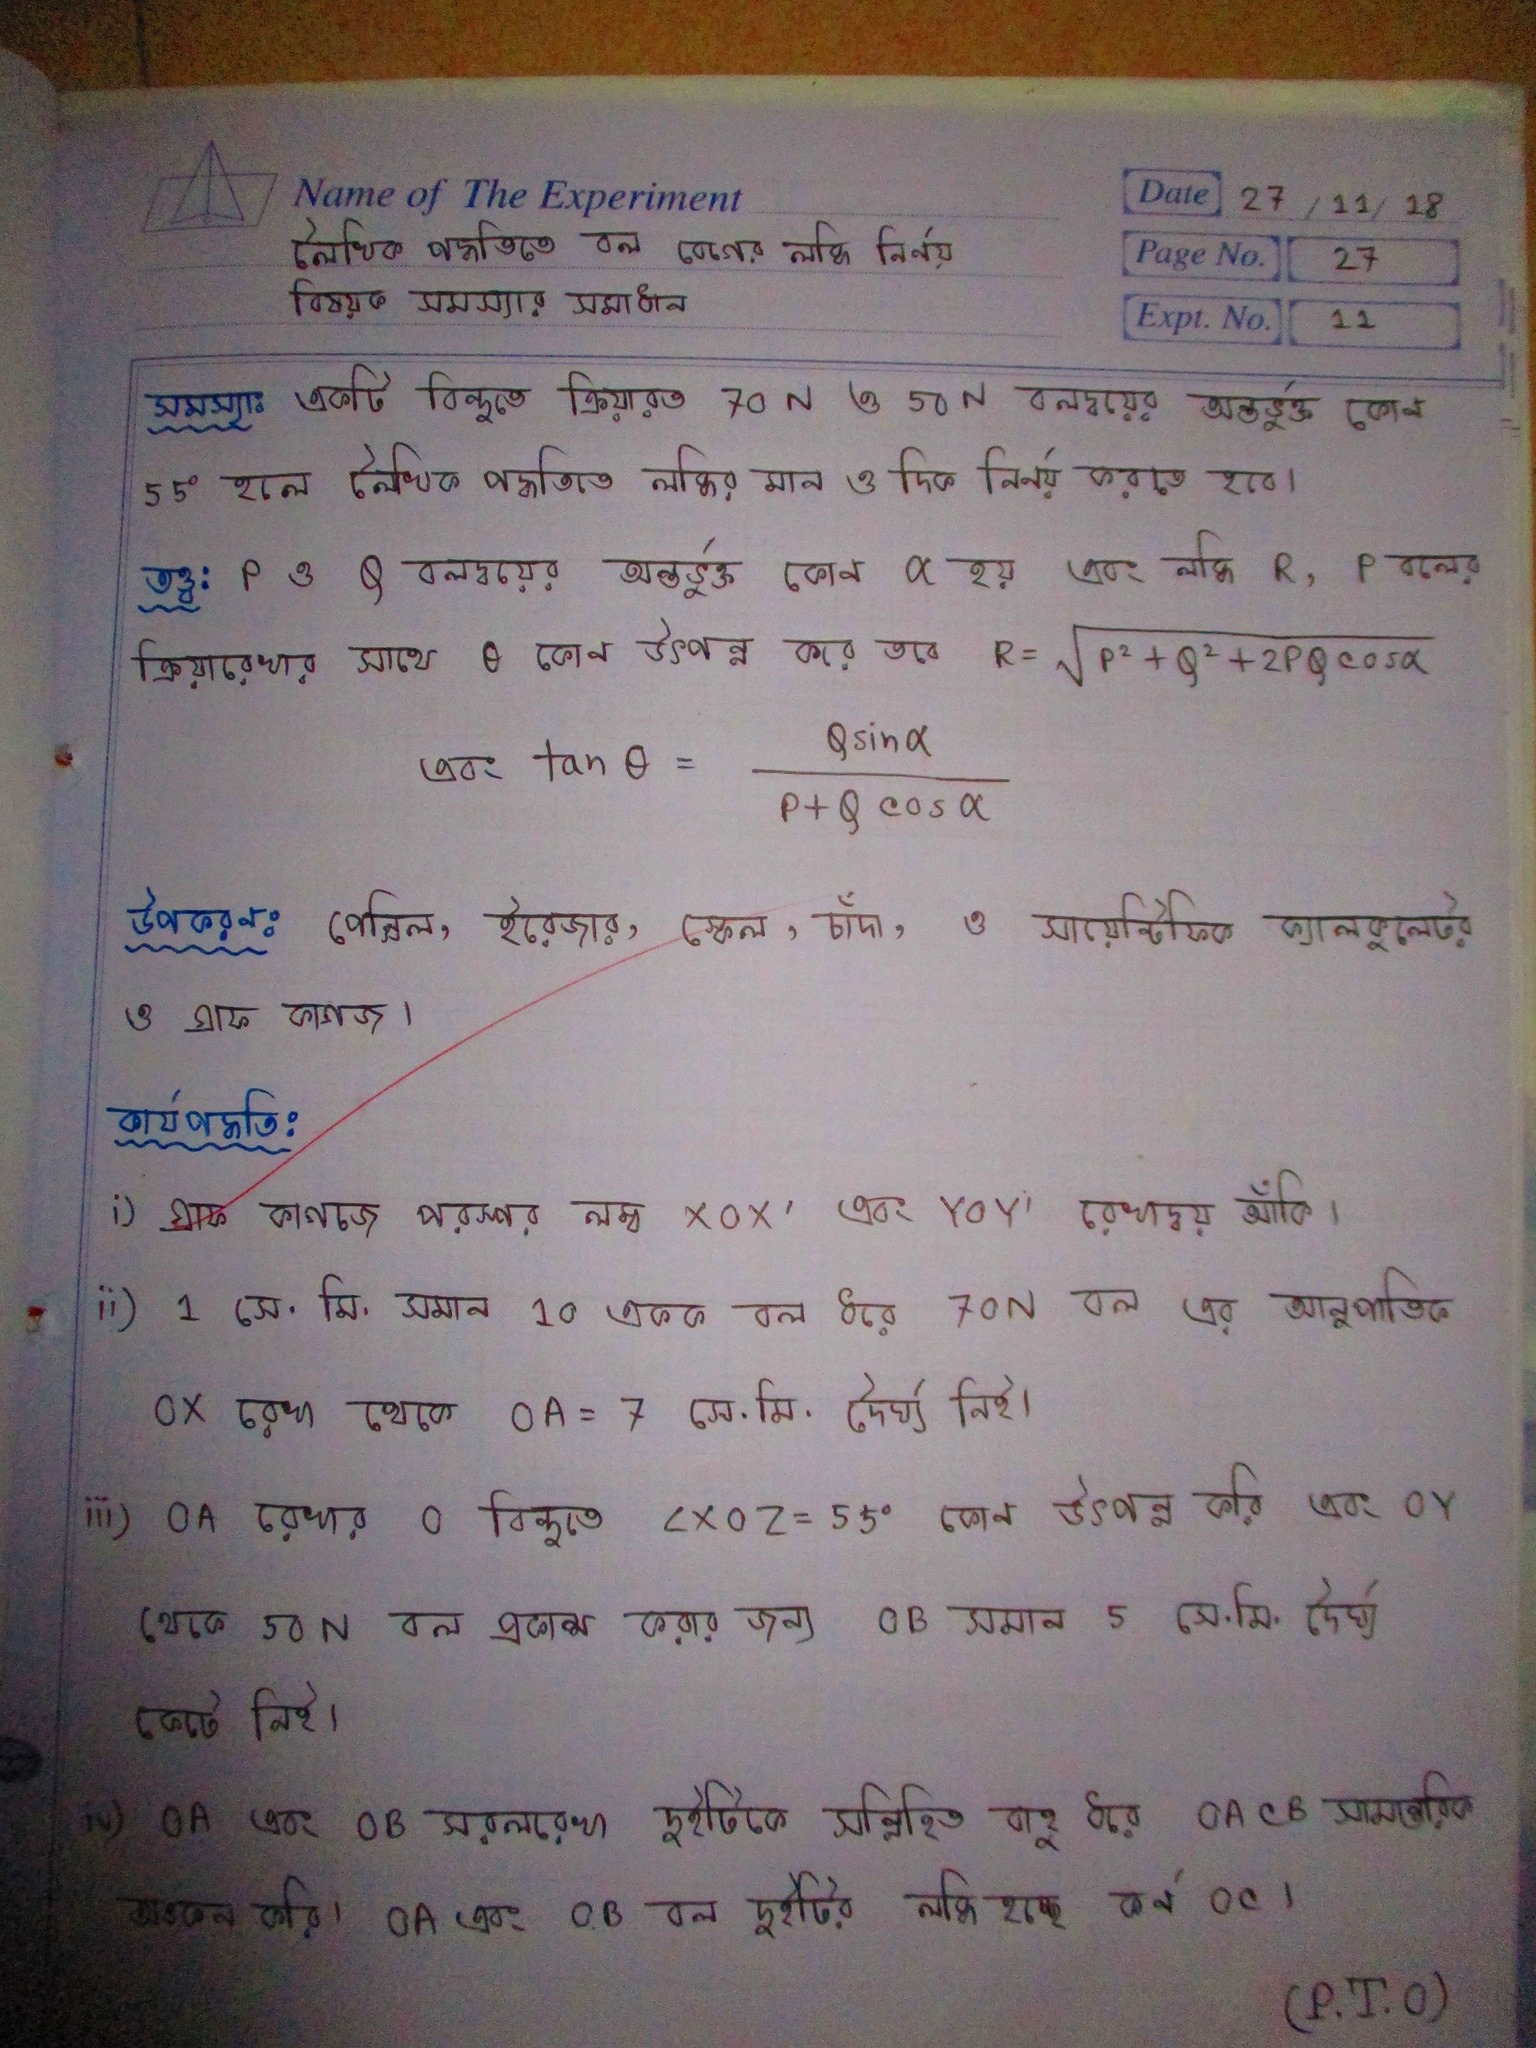 Name of The Experiment
Date 27/11/18
লৈখিক পদ্ধতিতে বল বেগের লব্ধি নির্ণয়
Page No. 27
বিষয়ক সমস্যার সমাধান
Expt. No. 11
সমস্যাঃ একটি বিন্দুতে ক্রিয়ারত 70 N ও 50 N বলদ্বয়ের অন্তর্ভুক্ত কোন
55° হলে লৈখিক পদ্ধতিতে লব্ধির মান ও দিক নির্নয় করতে হবে।
তত্ত্ব: P ও Q বলদ্বয়ের অন্তর্ভুক্ত কোন α হয় এবং লব্ধি R, P বলের
ক্রিয়ারেখার সাথে θ কোন উৎপন্ন করে তবে R = √(P² + Q² + 2PQ cosα)
এবং tan θ = Q sin α / P + Q cos α
উপকরণঃ পেন্সিল, ইরেজার, স্কেল, চাঁদা, ও সায়েন্টিফিক ক্যালকুলেটর
ও গ্রাফ কাগজ।
কার্যপদ্ধতি:
i) গ্রাফ কাগজে পরস্পর লম্ব XOX' এবং YOY' রেখাদ্বয় আঁকি।
ii) 1 সে. মি. সমান 10 একক বল ধরে 70N বল এর আনুপাতিক
OX রেখা থেকে OA = 7 সে.মি. দৈর্ঘ্য নিই।
iii) OA রেখার O বিন্দুতে ∠XOZ = 55° কোন উৎপন্ন করি এবং OY
থেকে 50 N বল প্রকাশ করার জন্য OB সমান 5 সে.মি. দৈর্ঘ্য
কেটে নিই।
iv) OA এবং OB সরলরেখা দুইটিকে সন্নিহিত বাহু ধরে OACB সামান্তরিক
অংকন করি। OA এবং OB বল দুইটির লব্ধি হচ্ছে কর্ন OC।
(P.T.O)